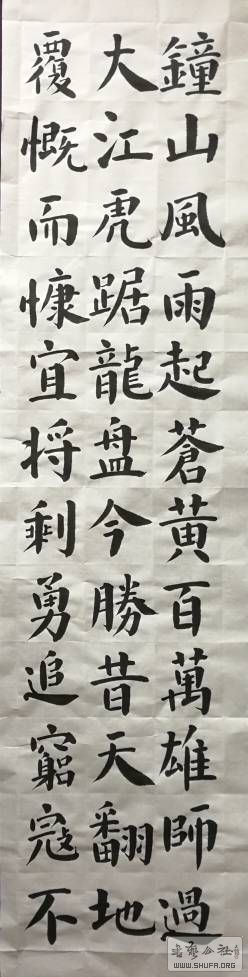 鐘山風雨起蒼黄百萬雄師過
大江虎踞龍盤今勝昔天翻地
覆慨而慷宜将剩勇追窮寇不
書藝公社
WWW.SHUFA.ORG